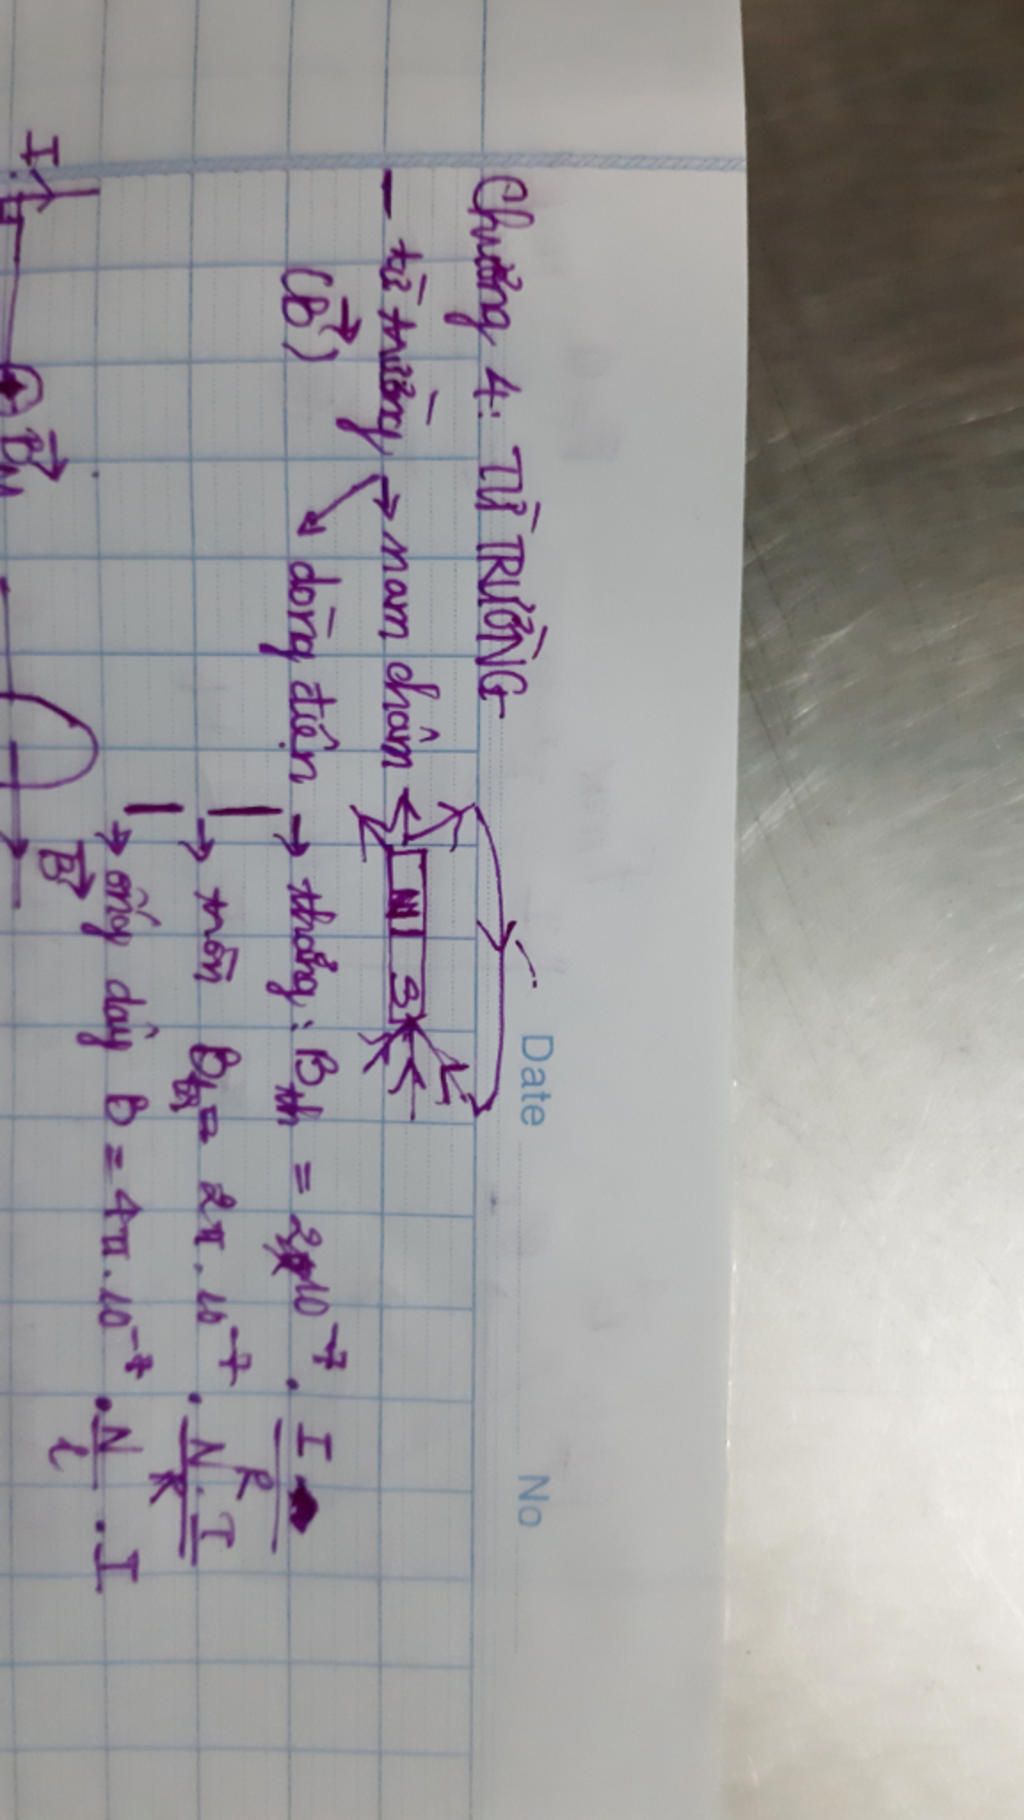 Date
No
Chương 4: TỪ TRƯỜNG
- từ trường → nam châm N S
(B⃗) → dòng điện → thẳng: Bth = 2.10⁻⁷ . I/R
→ tròn Btr = 2π.10⁻⁷ . N.I/R
→ ống dây B = 4π.10⁻⁷ . N/l . I
I B⃗M B⃗